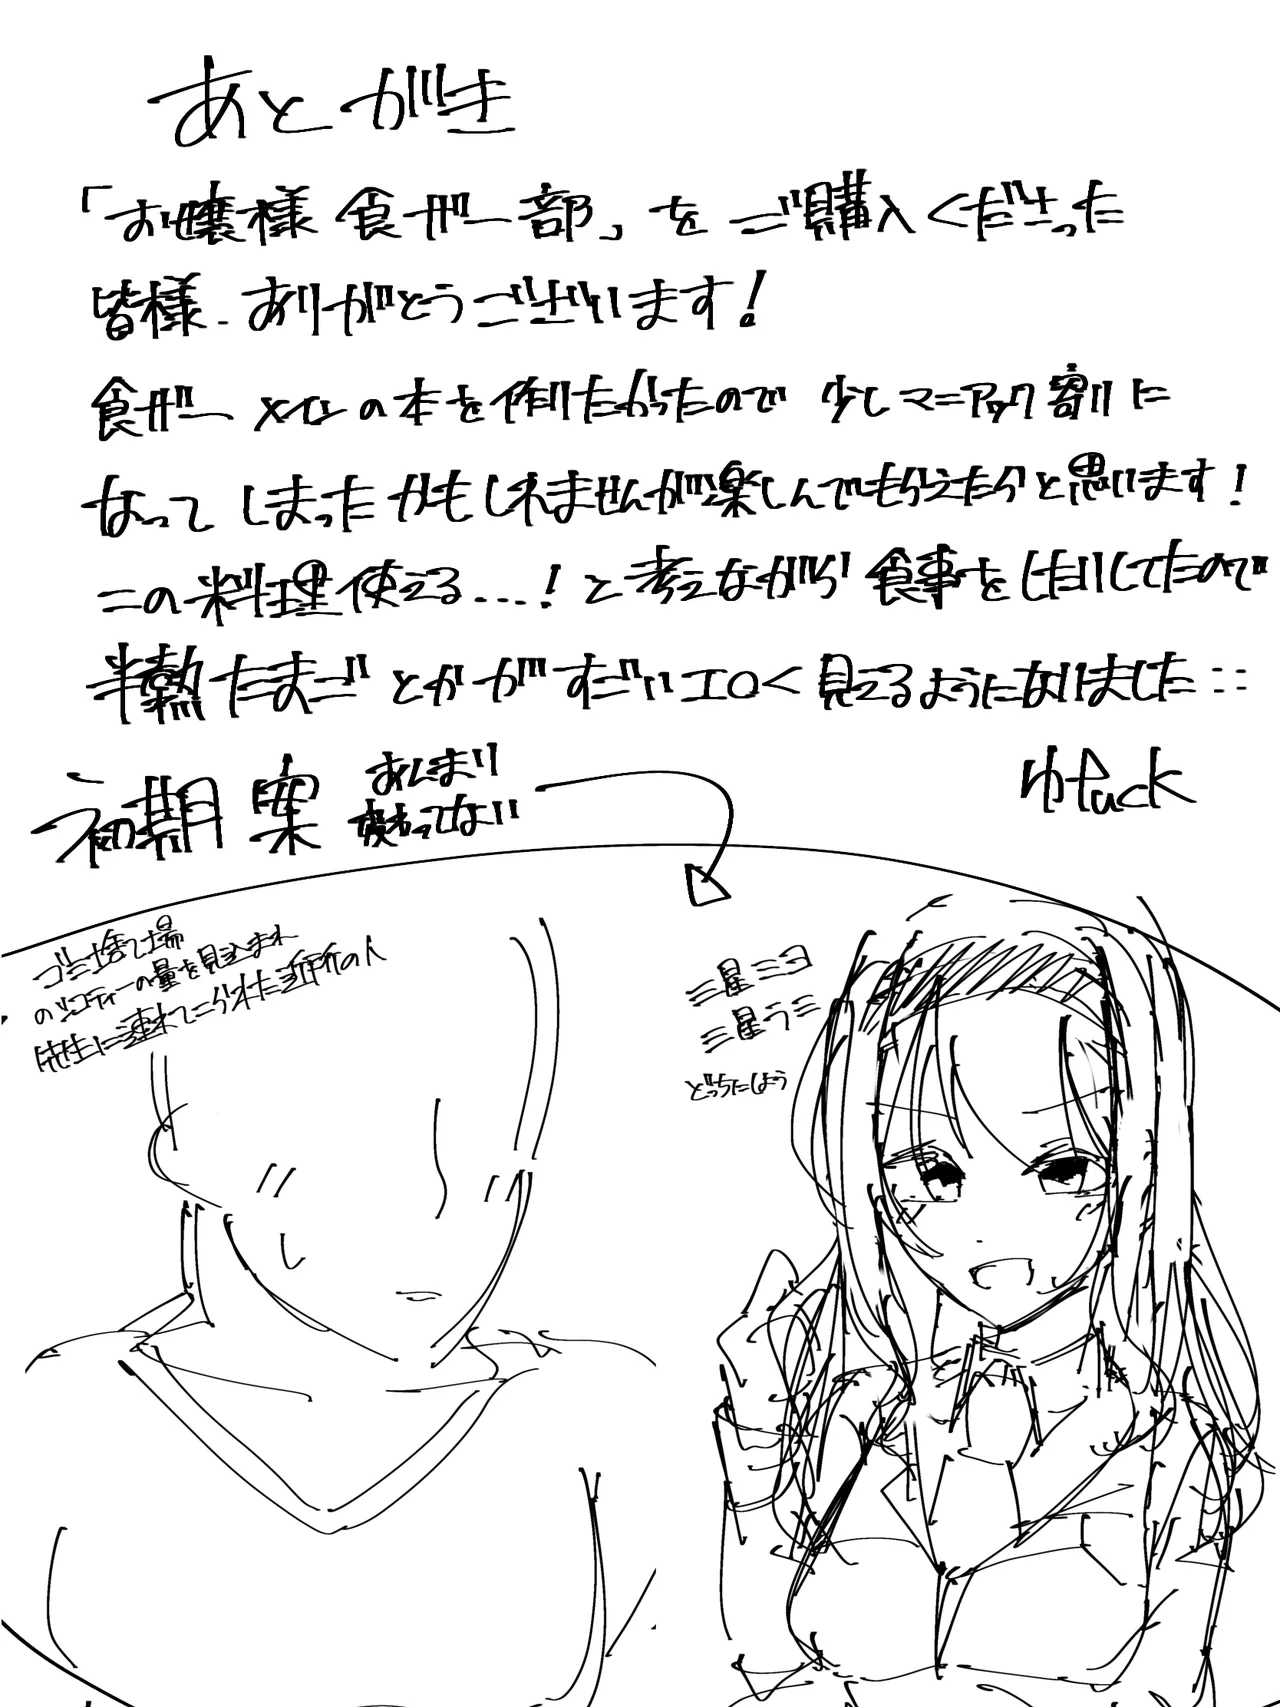 あとがき
「お嬢様食ザー部」をご購入くださった
皆様、ありがとうございます!
食ザーメインの本を作りたかったので少しマニアック寄りに
なってしまったかもしれませんが楽しんでもらえたらと思います!
この料理使える...!と考えながら食事をしたりしてたので
半熟たまごとかがすごいエロく見えるようになりました…
ゆfuck
初期案
あんまり
変わってない
ゴミ捨て場
のザコティーの量を見込まれ
先生に連れてこられた近所の人
三星ミコ
三星ラミ
どっちにしよう